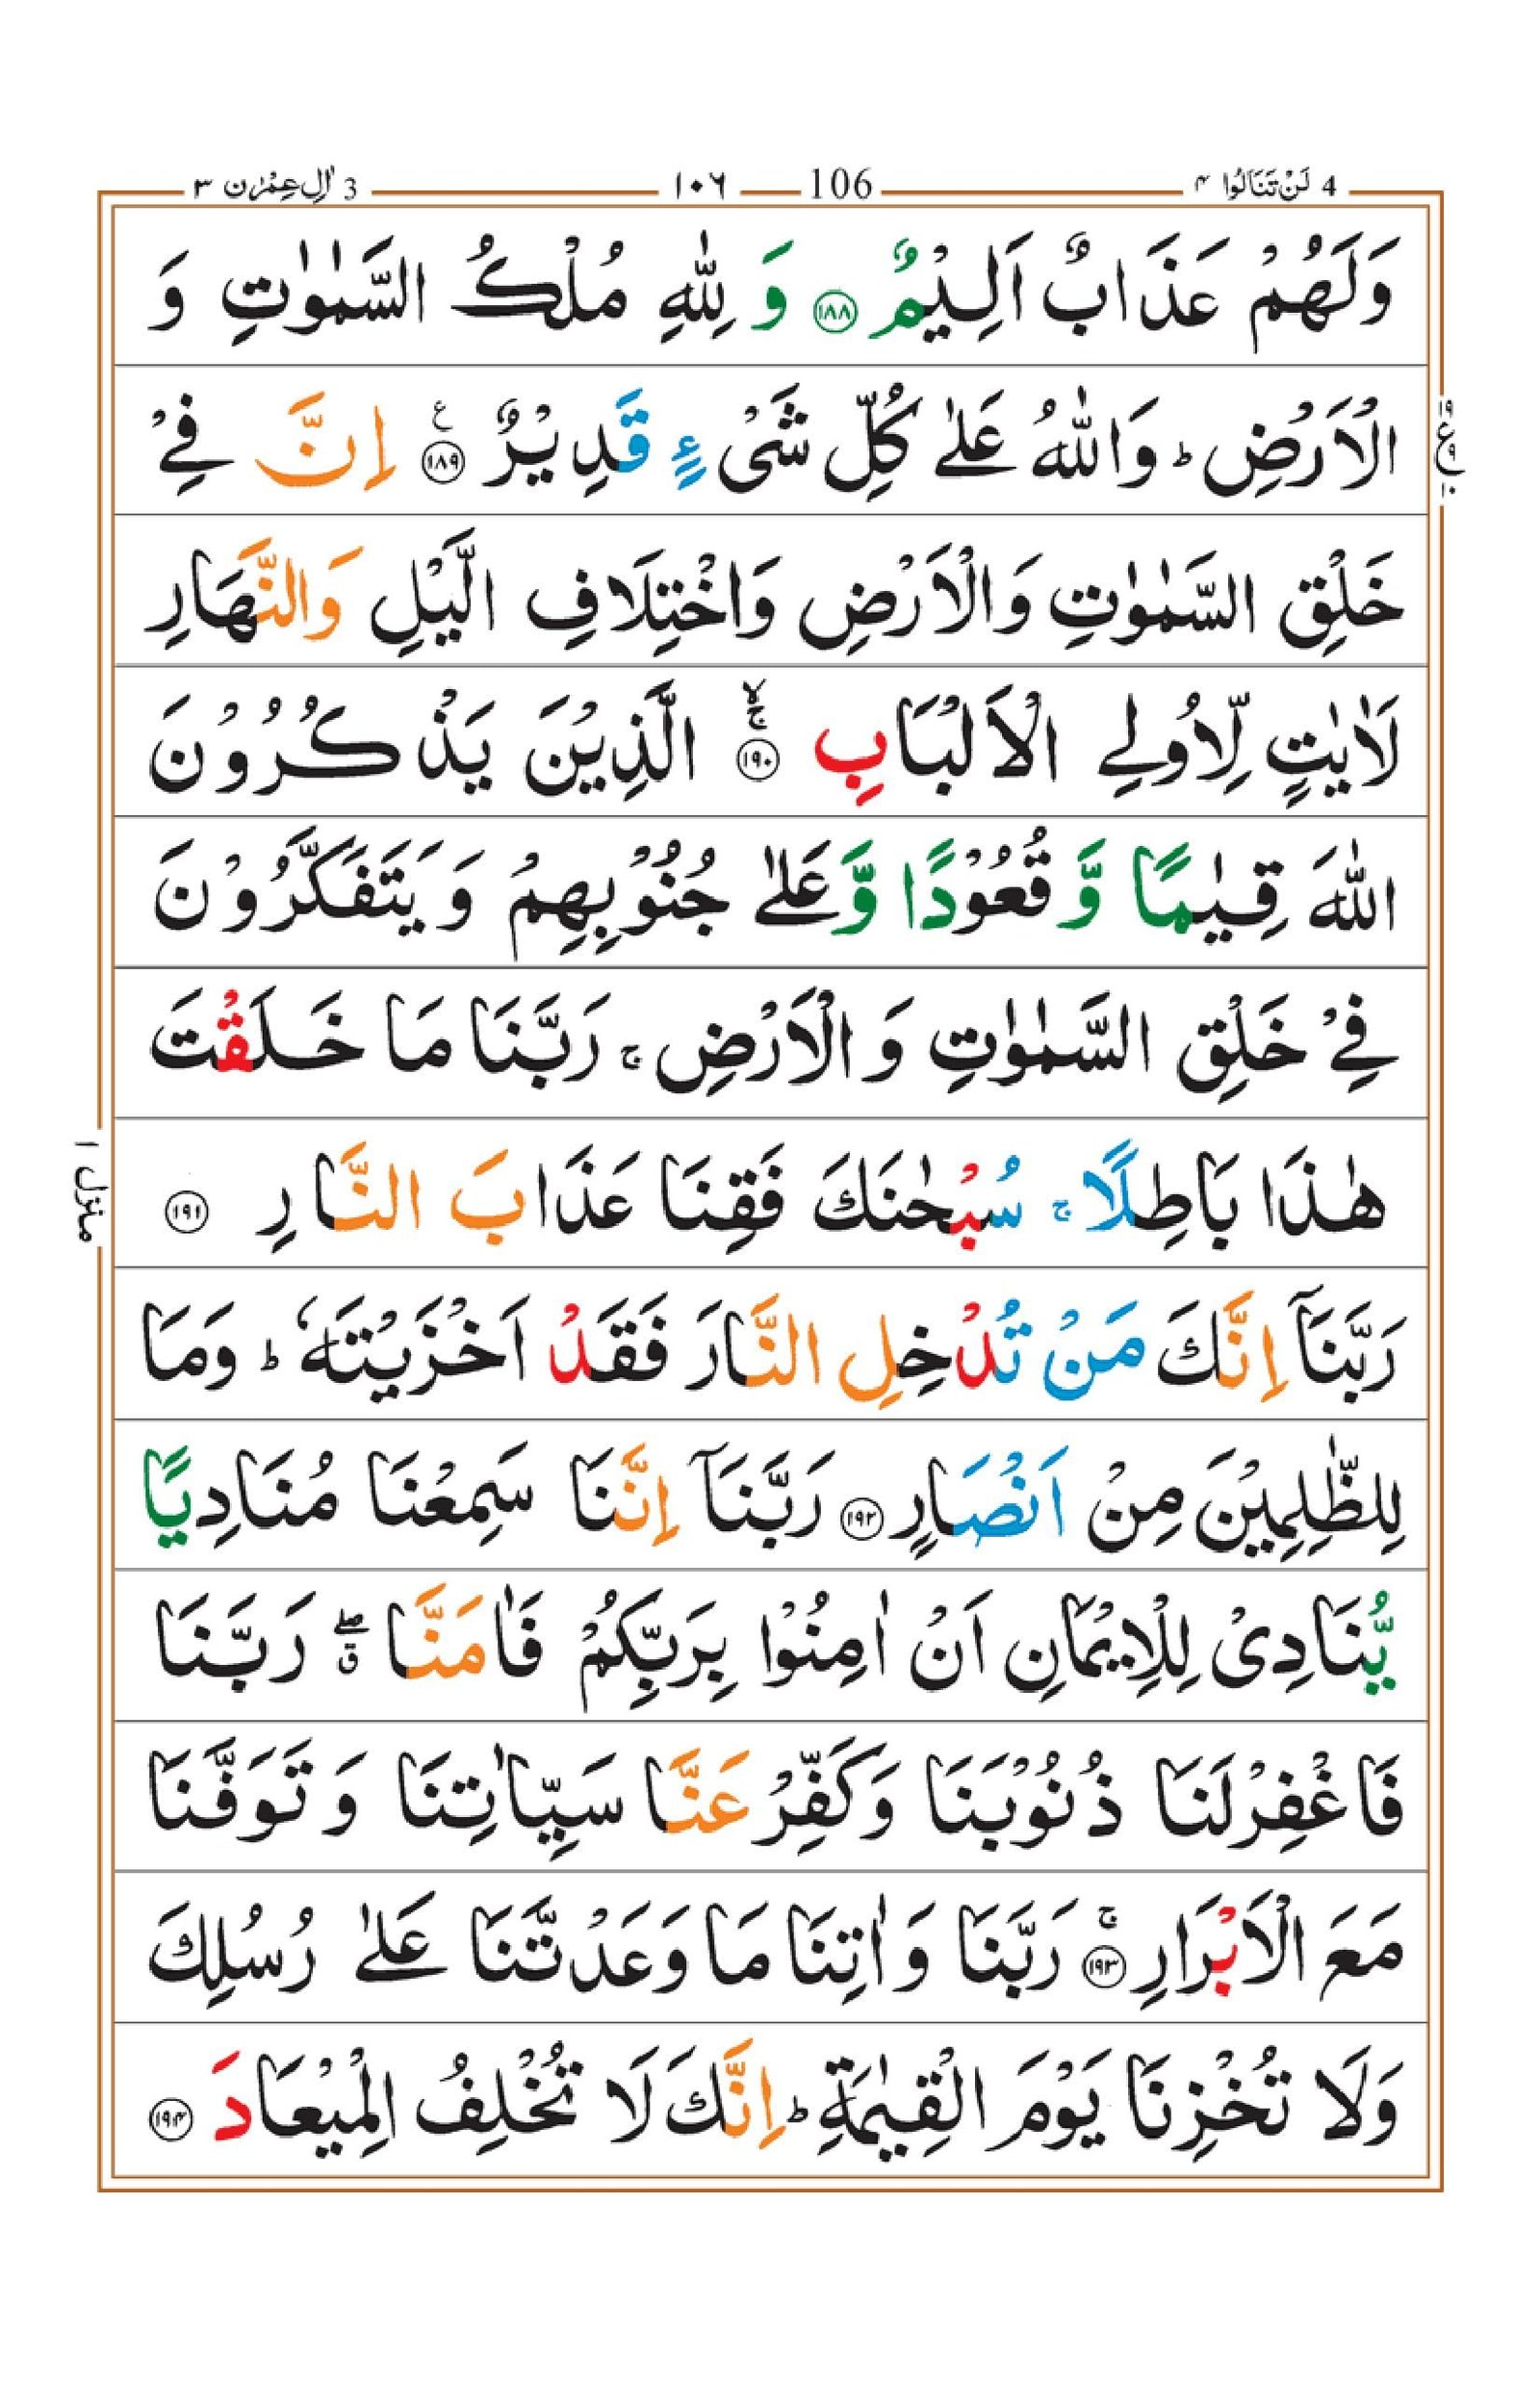 4 لَنْ تَنَالُوا ۴ 106 ١٠٦ 3 اٰلِ عِمْرٰن ٣
وَلَهُمْ عَذَابٌ اَلِيْمٌ ﴿۱۸۸﴾ وَ لِلّٰهِ مُلْكُ السَّمٰوٰتِ وَ
الْاَرْضِ ؕ وَاللّٰهُ عَلٰى كُلِّ شَىْءٍ قَدِيْرٌ ﴿۱۸۹﴾ ع اِنَّ فِىْ
خَلْقِ السَّمٰوٰتِ وَالْاَرْضِ وَاخْتِلَافِ الَّيْلِ وَالنَّهَارِ
لَاٰيٰتٍ لِّاُولِى الْاَلْبَابِ ﴿۱۹۰﴾ ۚۙ الَّذِيْنَ يَذْكُرُوْنَ
اللّٰهَ قِيٰمًا وَّ قُعُوْدًا وَّ عَلٰى جُنُوْبِهِمْ وَ يَتَفَكَّرُوْنَ
فِىْ خَلْقِ السَّمٰوٰتِ وَ الْاَرْضِ ۚ رَبَّنَا مَا خَلَقْتَ
هٰذَا بَاطِلًا ۚ سُبْحٰنَكَ فَقِنَا عَذَابَ النَّارِ ﴿۱۹۱﴾
رَبَّنَاۤ اِنَّكَ مَنْ تُدْخِلِ النَّارَ فَقَدْ اَخْزَيْتَهٗ ؕ وَمَا
لِلظّٰلِمِيْنَ مِنْ اَنْصَارٍ ﴿۱۹۲﴾ رَبَّنَاۤ اِنَّنَا سَمِعْنَا مُنَادِيًا
يُّنَادِىْ لِلْاِيْمَانِ اَنْ اٰمِنُوْا بِرَبِّكُمْ فَاٰمَنَّا ۖق رَبَّنَا
فَاغْفِرْلَنَا ذُنُوْبَنَا وَكَفِّرْ عَنَّا سَيِّاٰتِنَا وَ تَوَفَّنَا
مَعَ الْاَبْرَارِ ﴿۱۹۳﴾ ۚ رَبَّنَا وَ اٰتِنَا مَا وَعَدْتَّنَا عَلٰى رُسُلِكَ
وَلَا تُخْزِنَا يَوْمَ الْقِيٰمَةِ ؕ اِنَّكَ لَا تُخْلِفُ الْمِيْعَادَ ﴿۱۹۴﴾
۱۹ ع ۹ ۱۰
منزل ١